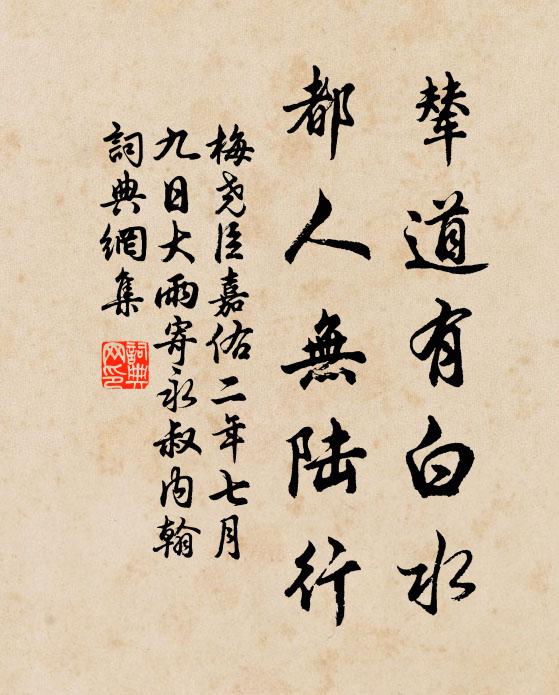 輦道有白水
都人無陆行
梅尧臣嘉佑二年七月
九日大雨寄永叔内翰
詞典網集
詞典
网印